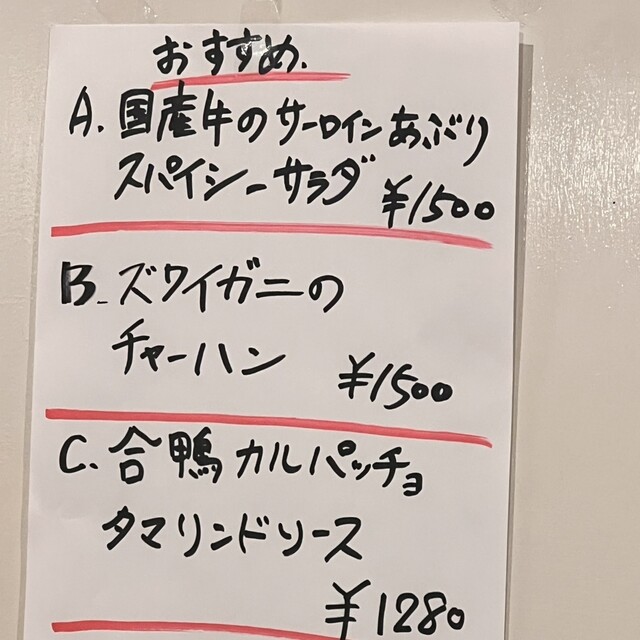 おすすめ.
A. 国産牛のサーロインあぶり
スパイシーサラダ ¥1500
B. ズワイガニの
チャーハン ¥1500
C. 合鴨カルパッチョ
タマリンドソース
¥1280